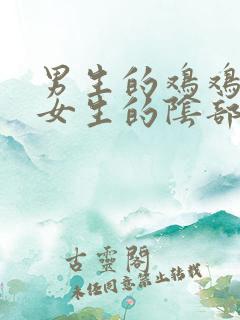 男生的鸡鸡
女生的陰部
古靈閣
未经同意禁止转载